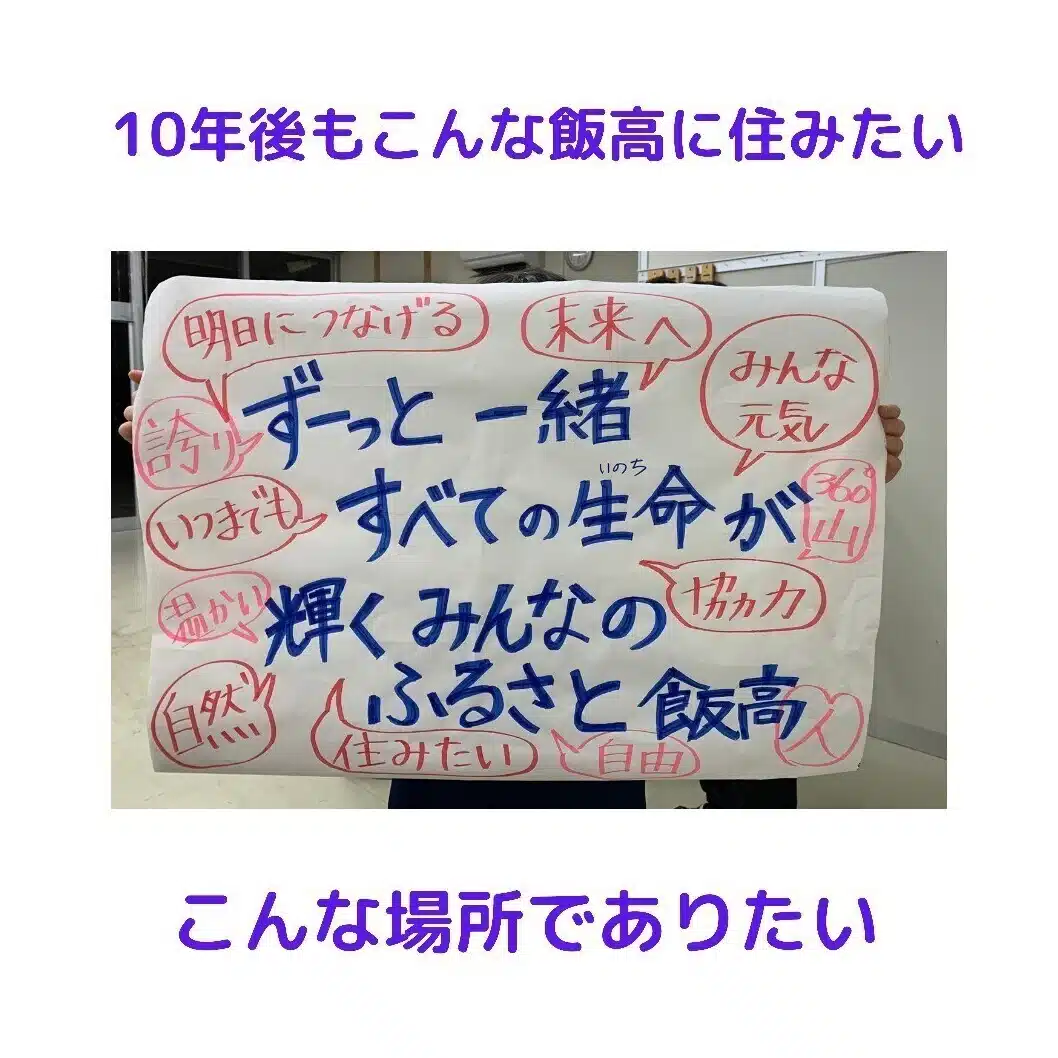 10年後もこんな飯高に住みたい
明日につなげる
未来へ
みんな
元気
誇り
ずーっと一緒
いつまでも
いのち
すべての生命が
360°
山
温かい
協力
輝くみんなの
自然
ふるさと飯高
人
住みたい
自由
こんな場所でありたい